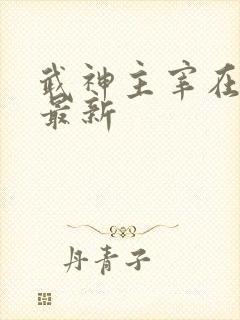 武神主宰在
最新
丹青子